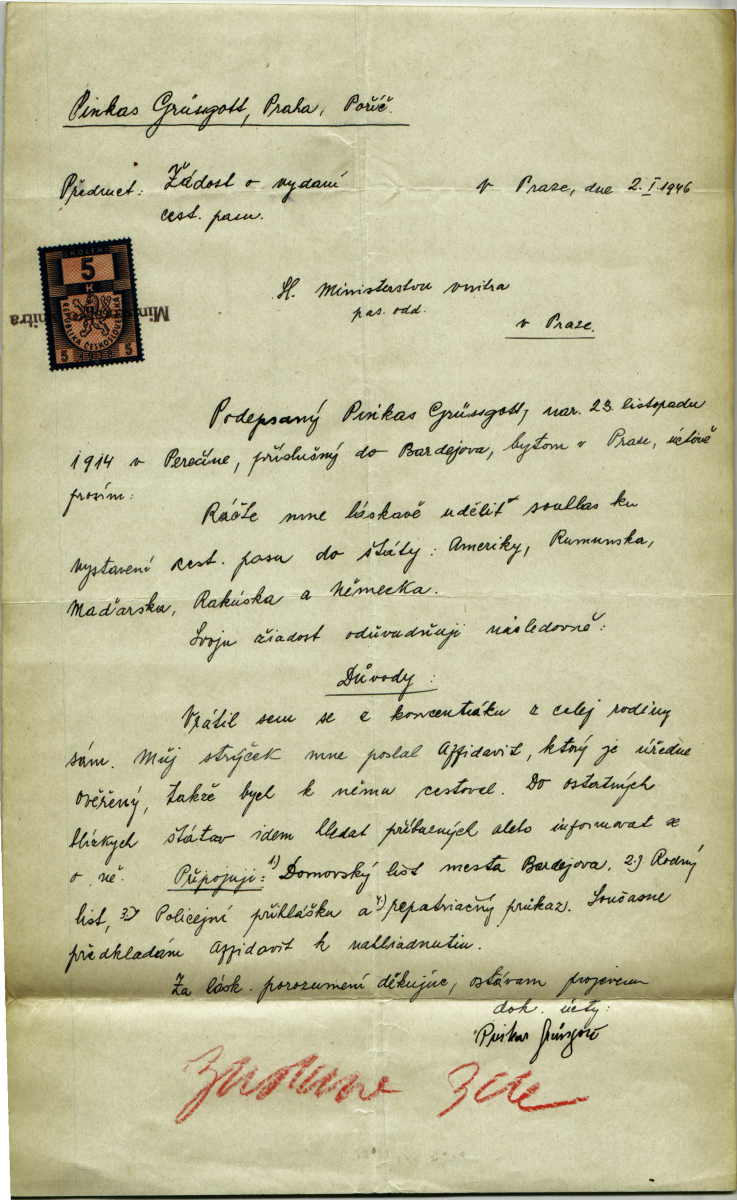 Pinkas Grüsgott, Praha, Poříč.
Předmet: Žádost o vydaní
cest. pasu.
v Praze, dne 2.I.1946
KOLEK
5
K
REPUBLIKA ČESKOSLOVENSKÁ
5 5
Minist vnitra
Sl. Ministerstvu vnitra
pas. odd.
v Praze.
Podepsaný Pinkas Grüssgott, nar. 23. listopadu
1914 v Perečíne, příslušný do Bardejova, bytom v Praze, úctivě
prosím:
Ráčte mne láskavě udělit souhlas ku
vystavení cest. pasu do štáty: Ameriky, Rumunska,
Maďarska, Rakúska a Německa.
Svoju žiadost odůvodňuji následovně:
Důvody:
Vrátil sem se z koncentráku z celej rodiny
sám. Můj strýček mne poslal Affidavit, ktorý je úředne
ověřený, takže bych k němu cestoval. Do ostatných
blízkych štátav idem hledat příbuzných alebo informovat se
o ně. Připojuji: 1) Domovský list mesta Bardejova, 2.) Rodný
list, 3.) Policejní přihlášku a 4) repatriačný průkaz. Současne
předkladám Affidavit k nahliadnutiu.
Za lásk. porozumení děkujúc, ostávam projevem
dok. úcty:
Pinkas Grüsgott
Zustane zde